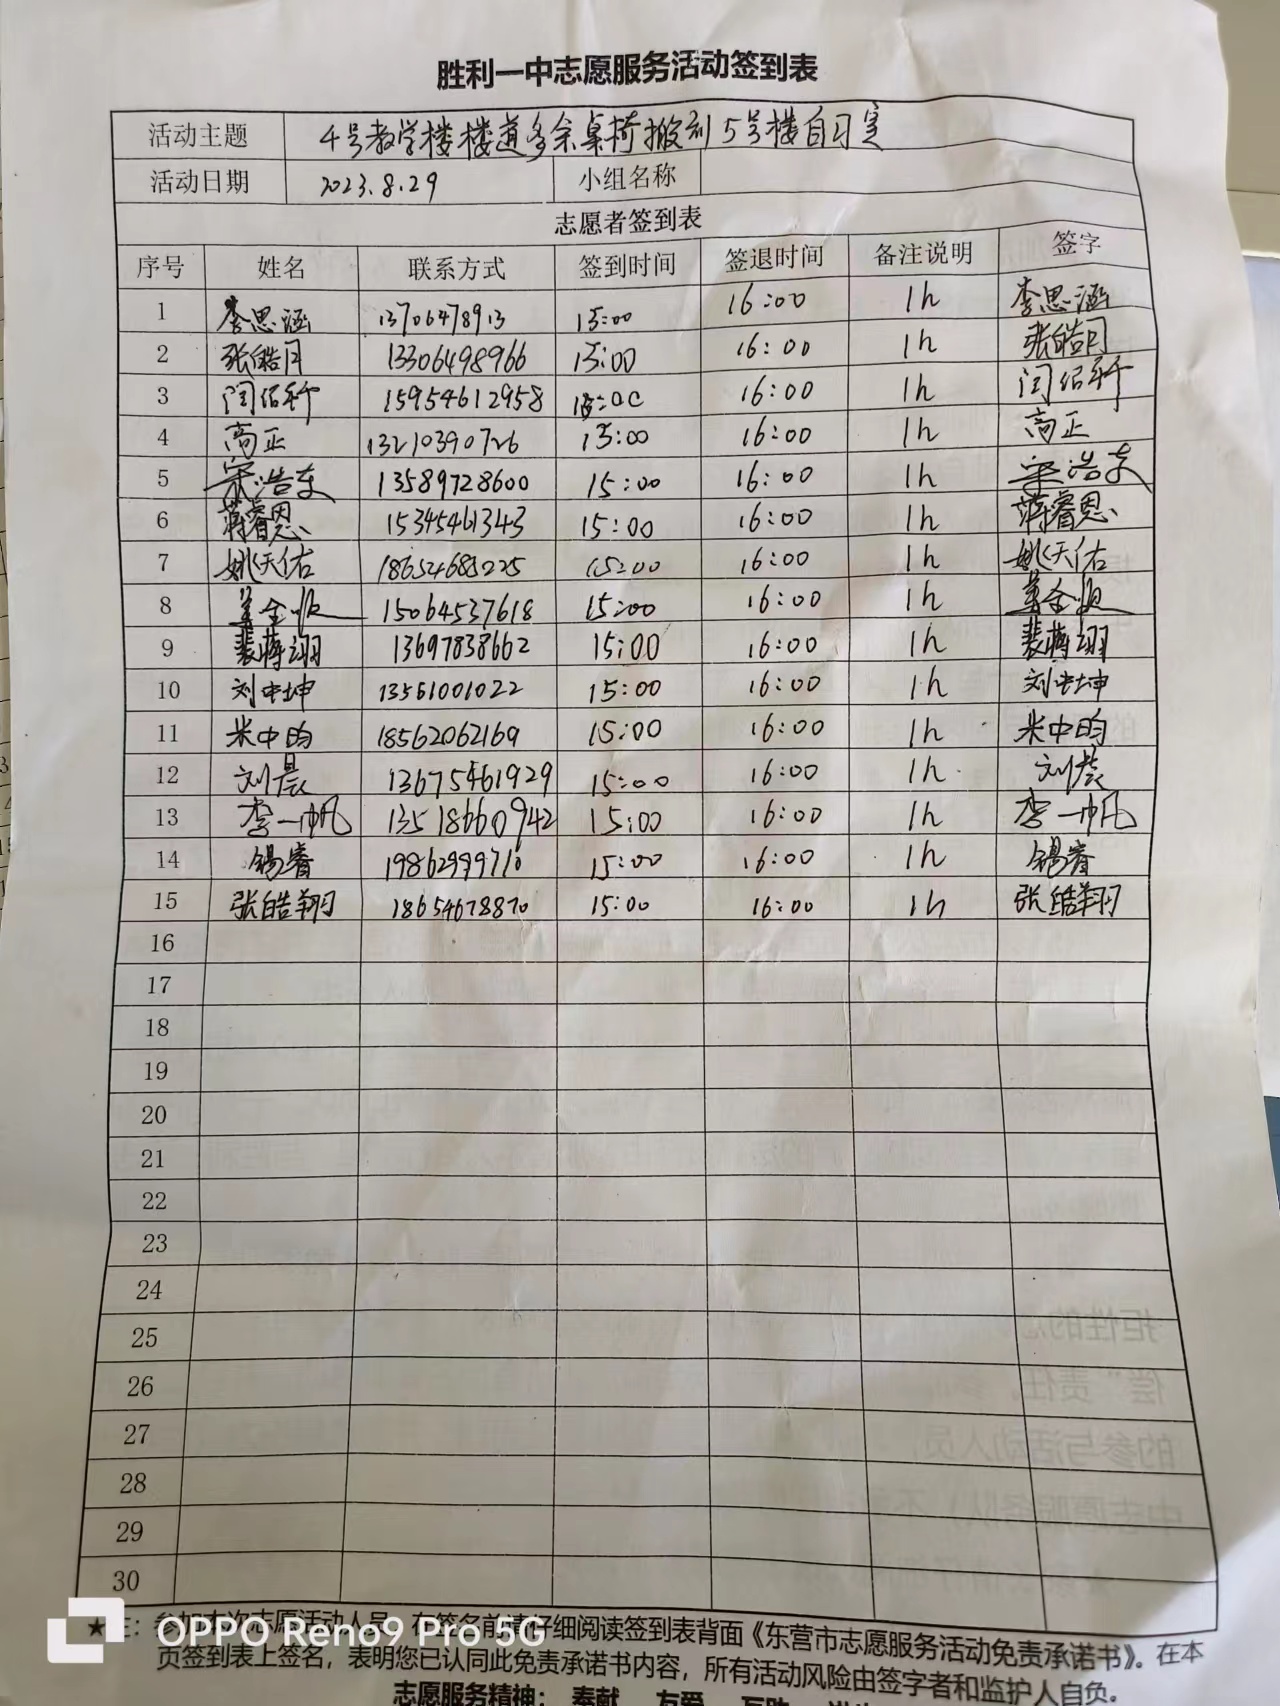 胜利一中志愿服务活动签到表
活动主题 4号教学楼楼道多余桌椅搬到5号楼自习室
活动日期 2023.8.29 小组名称
志愿者签到表
序号 姓名 联系方式 签到时间 签退时间 备注说明 签字
1 李思涵 13706478913 15:00 16:00 1h 李思涵
2 张皓月 13306498966 15:00 16:00 1h 张皓月
3 闫绍轩 15954612958 15:00 16:00 1h 闫绍轩
4 高正 13210390726 15:00 16:00 1h 高正
5 宋浩东 13589728600 15:00 16:00 1h 宋浩东
6 蒋睿恩 15345461343 15:00 16:00 1h 蒋睿恩
7 姚天佑 15:00 16:00 1h 姚天佑
8 15064537618 15:00 16:00 1h
9 裴蒋翊 13697838662 15:00 16:00 1h 裴蒋翊
10 刘中坤 13561001022 15:00 16:00 1h 刘中坤
11 米中昀 18562062169 15:00 16:00 1h 米中昀
12 刘晨 13675461929 15:00 16:00 1h 刘晨
13 李一帆 13518660942 15:00 16:00 1h 李一帆
14 锡睿 15:00 16:00 1h 锡睿
15 张皓翔 18654678870 15:00 16:00 1h 张皓翔
16
17
18
19
20
21
22
23
24
25
26
27
28
29
30
★注：参加本次志愿活动人员，在签名前请仔细阅读签到表背面《东营市志愿服务活动免责承诺书》。在本
页签到表上签名，表明您已认同此免责承诺书内容，所有活动风险由签字者和监护人自负。
志愿服务精神：奉献 友爱 互助
OPPO Reno9 Pro 5G